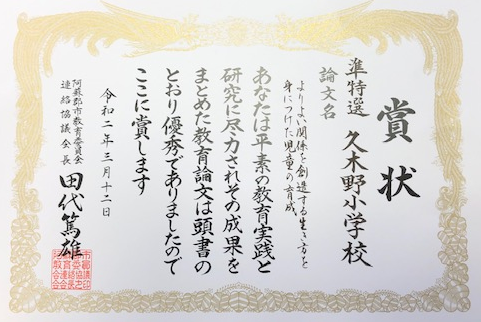 賞状
準特選 久木野小学校
論文名
よりよい関係を創造する生き方を
身につけた児童の育成
あなたは平素の教育実践と
研究に尽力されその成果を
まとめた教育論文は頭書の
とおり優秀でありましたので
ここに賞します
令和二年三月十二日
阿蘇郡市教育委員会
連絡協議会長 田代篤雄